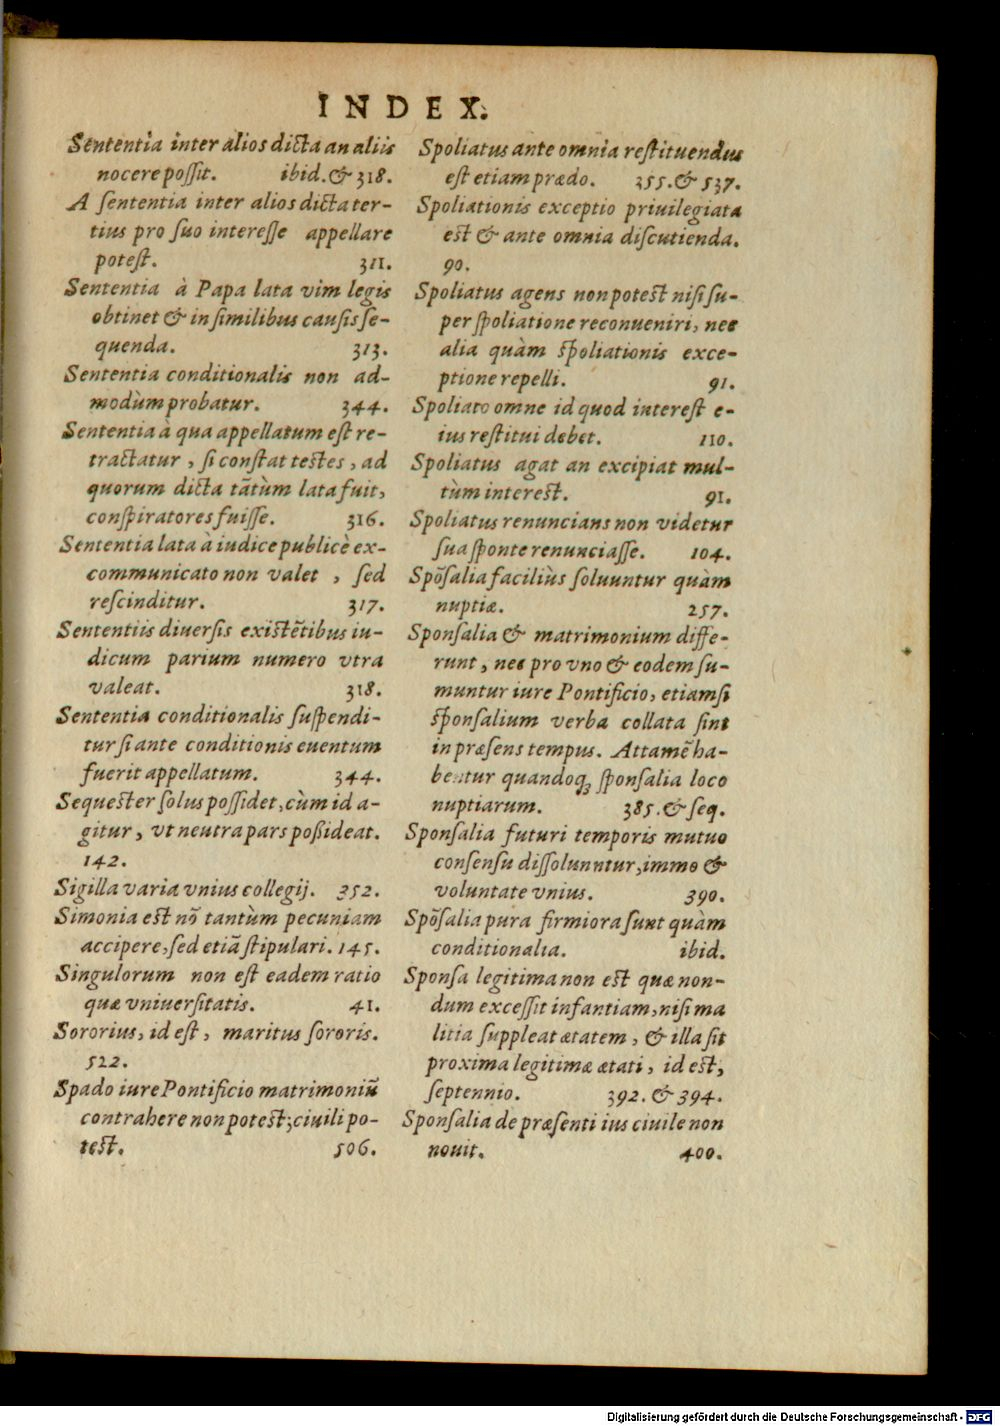 INDEX.
Sententia inter alios dicta an aliis
nocere possit. ibid. & 318.
A sententia inter alios dicta ter-
tius pro suo interesse appellare
potest. 311.
Sententia à Papa lata vim legis
obtinet & in similibus causis se-
quenda. 313.
Sententia conditionalis non ad-
modùm probatur. 344.
Sententia à qua appellatum est re-
tractatur, si constat testes, ad
quorum dicta tãtùm lata fuit,
conspiratores fuisse. 316.
Sententia lata à iudice publicè ex-
communicato non valet, sed
rescinditur. 317.
Sententiis diuersis existẽtibus iu-
dicum parium numero vtra
valeat. 318.
Sententia conditionalis suspendi-
tur si ante conditionis euentum
fuerit appellatum. 344.
Sequester solus possidet, cùm id a-
gitur, vt neutra pars poßideat.
142.
Sigilla varia vnius collegij. 352.
Simonia est nõ tantùm pecuniam
accipere, sed etiã stipulari. 145.
Singulorum non est eadem ratio
quæ vniuersitatis. 41.
Sororius, id est, maritus sororis.
522.
Spado iure Pontificio matrimoniũ
contrahere non potest; ciuili po-
test. 506.
Spoliatus ante omnia restituendus
est etiam prædo. 355. & 537.
Spoliationis exceptio priuilegiata
est & ante omnia discutienda.
90.
Spoliatus agens non potest nisi su-
per spoliatione reconueniri, nec
alia quàm spoliationis exce-
ptione repelli. 91.
Spoliato omne id quod interest e-
ius restitui debet. 110.
Spoliatus agat an excipiat mul-
tùm interest. 91.
Spoliatus renuncians non videtur
sua sponte renunciasse. 104.
Spõsalia faciliùs soluuntur quàm
nuptiæ. 257.
Sponsalia & matrimonium diffe-
runt, nec pro vno & eodem su-
muntur iure Pontificio, etiamsi
sponsalium verba collata sint
in præsens tempus. Attamẽ ha-
bentur quandoq; sponsalia loco
nuptiarum. 385. & seq.
Sponsalia futuri temporis mutuo
consensu dissolunntur, immo &
voluntate vnius. 390.
Spõsalia pura firmiora sunt quàm
conditionalia. ibid.
Sponsa legitima non est quæ non-
dum excessit infantiam, nisi ma
litia suppleat ætatem, & illa sit
proxima legitimæ ætati, id est,
septennio. 392. & 394.
Sponsalia de præsenti ius ciuile non
nouit. 400.
Digitalisierung gefördert durch die Deutsche Forschungsgemeinschaft - DFG